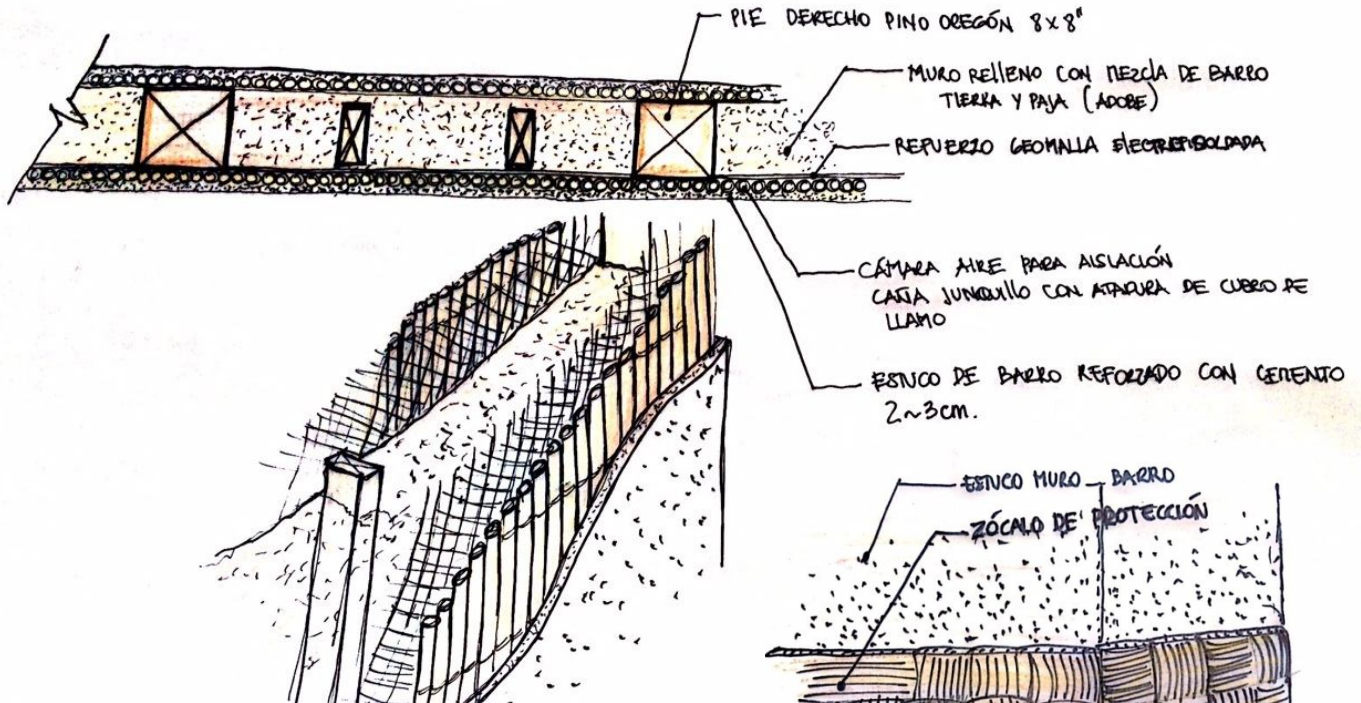 PIE DERECHO PINO OREGÓN 8x8"
MURO RELLENO CON MEZCLA DE BARRO
TIERRA Y PAJA (ADOBE)
REFUERZO GEOMALLA ELECTROSOLDADA
CÁMARA AIRE PARA AISLACIÓN
CAÑA JUNQUILLO CON ATADURA DE CUERO DE
LLAMO
ESTUCO DE BARRO REFORZADO CON CEMENTO
2~3cm.
ESTUCO MURO BARRO
ZÓCALO DE PROTECCIÓN